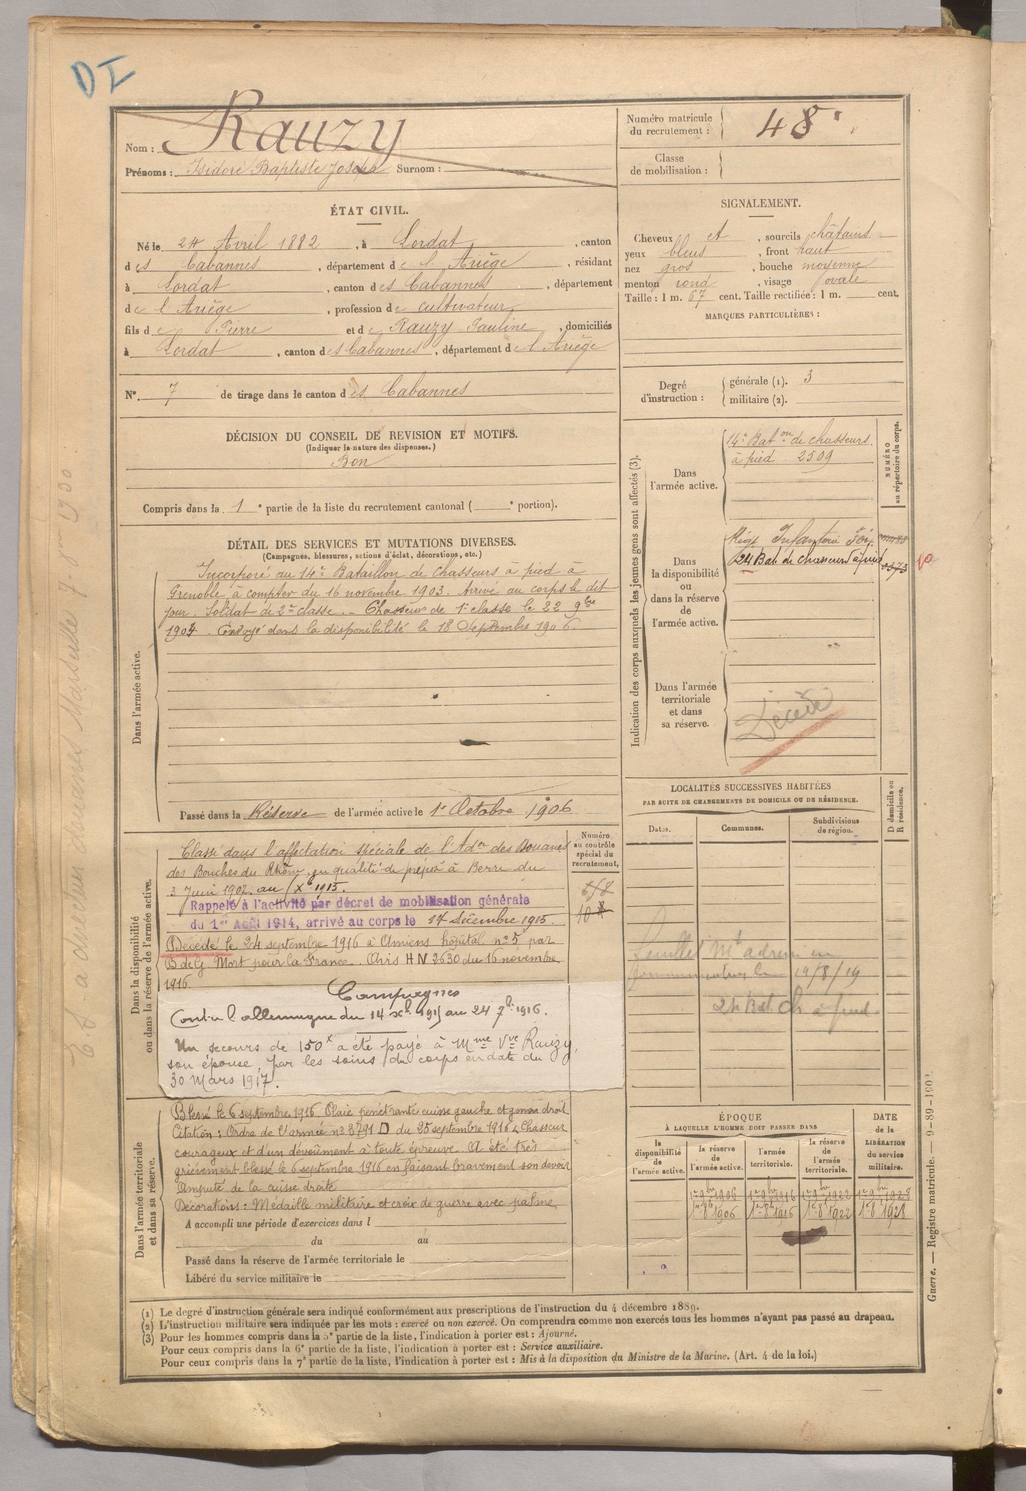 DI
Nom : Rauzy
Prénoms : Isidore Baptiste Joseph Surnom :
Numéro matricule du recrutement : 48
Classe de mobilisation :
ÉTAT CIVIL.
Né le 24 Avril 1882, à Lordat, canton
des Cabannes, département de l'Ariège, résidant
à Lordat, canton des Cabannes, département
de l'Ariège, profession de cultivateur
fils de Pierre et de Rauzy Pauline, domiciliés
à Lordat, canton des Cabannes, département de l'Ariège
N° 7 de tirage dans le canton des Cabannes
SIGNALEMENT.
Cheveux et, sourcils châtains
yeux bleus, front haut
nez gros, bouche moyenne
menton rond, visage ovale
Taille : 1 m. 67 cent. Taille rectifiée : 1 m. cent.
MARQUES PARTICULIÈRES :
Degré d'instruction : générale (1). 3
militaire (2).
DÉCISION DU CONSEIL DE REVISION ET MOTIFS.
(Indiquer la nature des dispenses.)
Bon
Compris dans la 1e partie de la liste du recrutement cantonal ( e portion).
DÉTAIL DES SERVICES ET MUTATIONS DIVERSES.
(Campagnes, blessures, actions d'éclat, décorations, etc.)
Dans l'armée active.
Incorporé au 14e Bataillon de chasseurs à pied à
Grenoble à compter du 16 novembre 1903. Arrivé au corps le dit
jour. Soldat de 2e classe. Chasseur de 1e classe le 22 9bre
1904. Envoyé dans la disponibilité le 18 Septembre 1906.
Passé dans la Réserve de l'armée active le 1er Octobre 1906
Indication des corps auxquels les jeunes gens sont affectés (3).
NUMÉRO au répertoire du corps.
Dans l'armée active.
14e Baton de chasseurs
à pied 2509
Dans la disponibilité ou dans la réserve de l'armée active.
24 Bat de chasseurs à pied
Dans l'armée territoriale et dans sa réserve.
Décédé
LOCALITÉS SUCCESSIVES HABITÉES
PAR SUITE DE CHANGEMENTS DE DOMICILE OU DE RÉSIDENCE.
Dates. Communes. Subdivisions de région. D domicile ou R résidence.
19/8/19
24 Bat. Ch à pied
Dans la disponibilité ou dans la réserve de l'armée active.
Numéro au contrôle spécial du recrutement.
Classé dans l'affectation spéciale de l'Adon des Douanes
des Bouches du Rhône en qualité de préposé à Berre du
3 Juin 1907 au Xbre 1915.
Rappelé à l'activité par décret de mobilisation générale
du 1er Août 1914, arrivé au corps le 14 décembre 1915.
Décédé le 24 septembre 1916 à Amiens hôpital n° 5 par
B de G. Mort pour la France. Avis HN 2630 du 16 novembre
1916.
Campagnes
Contre l'allemagne du 14 Xbre 1915 au 24 7bre 1916.
Un secours de 150f a été payé à Mme Vve Rauzy,
son épouse, par les soins du corps en date du
30 Mars 1917.
Dans l'armée territoriale et dans sa réserve.
Blessé le 6 septembre 1916 Plaie pénétrante cuisse gauche et genou droit
Citation : Ordre de l'armée n° 3791 D du 25 septembre 1916 « Chasseur
courageux et d'un dévouement à toute épreuve. A été très
grièvement blessé le 6 septembre 1916 en faisant bravement son devoir
Amputé de la cuisse droite
Décorations : Médaille militaire et croix de guerre avec palme
A accompli une période d'exercices dans l
du au
Passé dans la réserve de l'armée territoriale le
Libéré du service militaire le
ÉPOQUE
À LAQUELLE L'HOMME DOIT PASSER DANS
la disponibilité de l'armée active. la réserve de l'armée active. l'armée territoriale. la réserve de l'armée territoriale.
DATE de la LIBÉRATION du service militaire.
1er 8bre 1906 1er 8bre 1916 1er 8bre 1922 1er 8bre 1928
(1) Le degré d'instruction générale sera indiqué conformément aux prescriptions de l'instruction du 4 décembre 1889.
(2) L'instruction militaire sera indiquée par les mots : exercé ou non exercé. On comprendra comme non exercés tous les hommes n'ayant pas passé au drapeau.
(3) Pour les hommes compris dans la 5e partie de la liste, l'indication à porter est : Ajourné.
Pour ceux compris dans la 6e partie de la liste, l'indication à porter est : Service auxiliaire.
Pour ceux compris dans la 7e partie de la liste, l'indication à porter est : Mis à la disposition du Ministre de la Marine. (Art. 4 de la loi.)
Guerre. — Registre matricule. — 9-89-1902